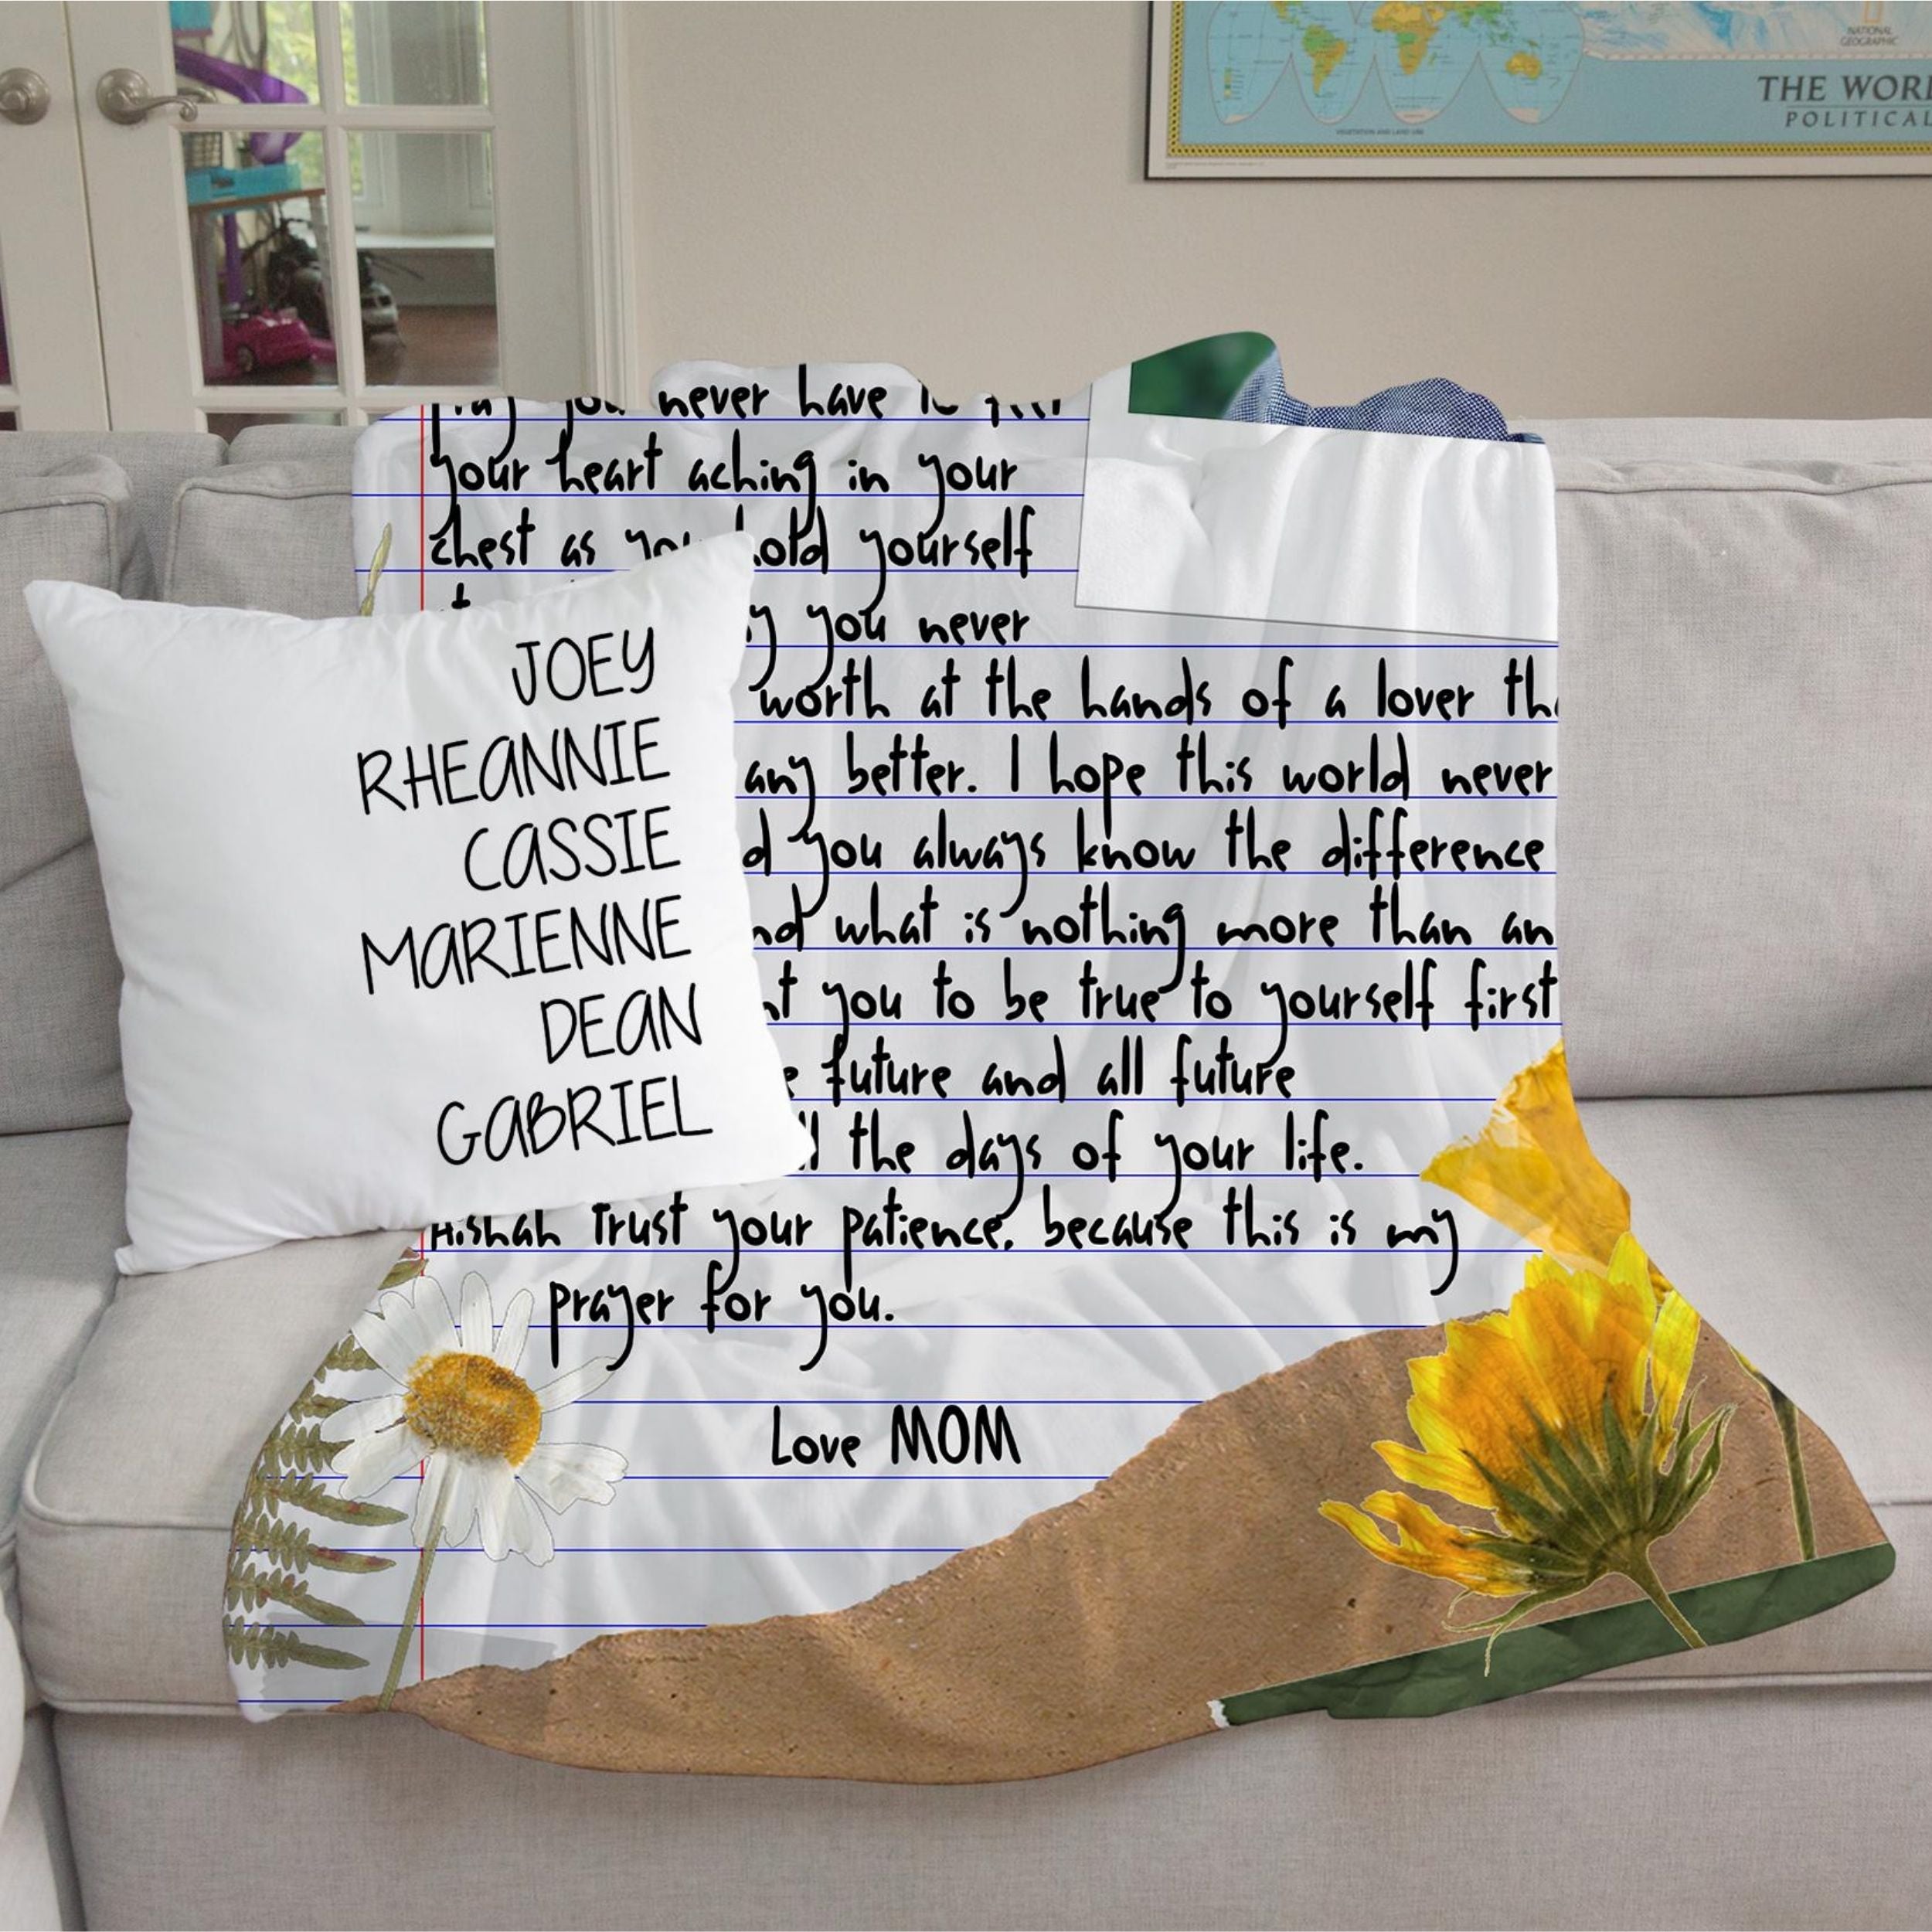 NATIONAL
GEOGRAPHIC
THE WOR
POLITICAL
VEGETATION AND LAND USE
you never have
your heart aching in your
chest as you hold yourself
you never
worth at the hands of a lover th
any better. I hope this world never
d you always know the difference
nd what is nothing more than an
t you to be true to yourself first
e future and all future
ll the days of your life.
Aishah Trust your patience, because this is my
prayer for you.
Love MOM
JOEY
RHEANNIE
CASSIE
MARIENNE
DEAN
GABRIEL